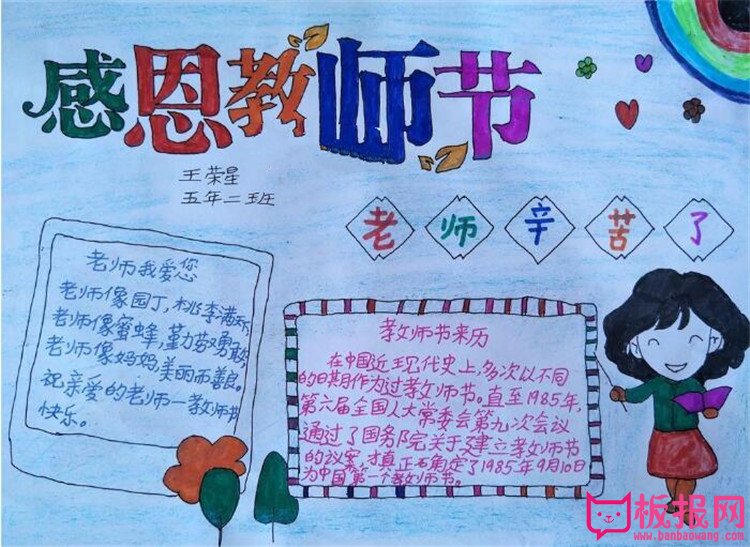 感恩教师节
王荣星
五年二班
老师辛苦了
老师我爱您
老师像园丁,桃李满天下,
老师像蜜蜂,勤劳勇敢,
老师像妈妈,美丽而善良。
祝亲爱的老师一教师节
快乐。
教师节来历
在中国近现代史上,多次以不同
的日期作为过教师节。直至1985年,
第六届全国人大常委会第九次会议
通过了国务院关于建立教师节
的议案,才真正确定了1985年9月10日
为中国第一个教师节。
板报网
www.banbaowang.com